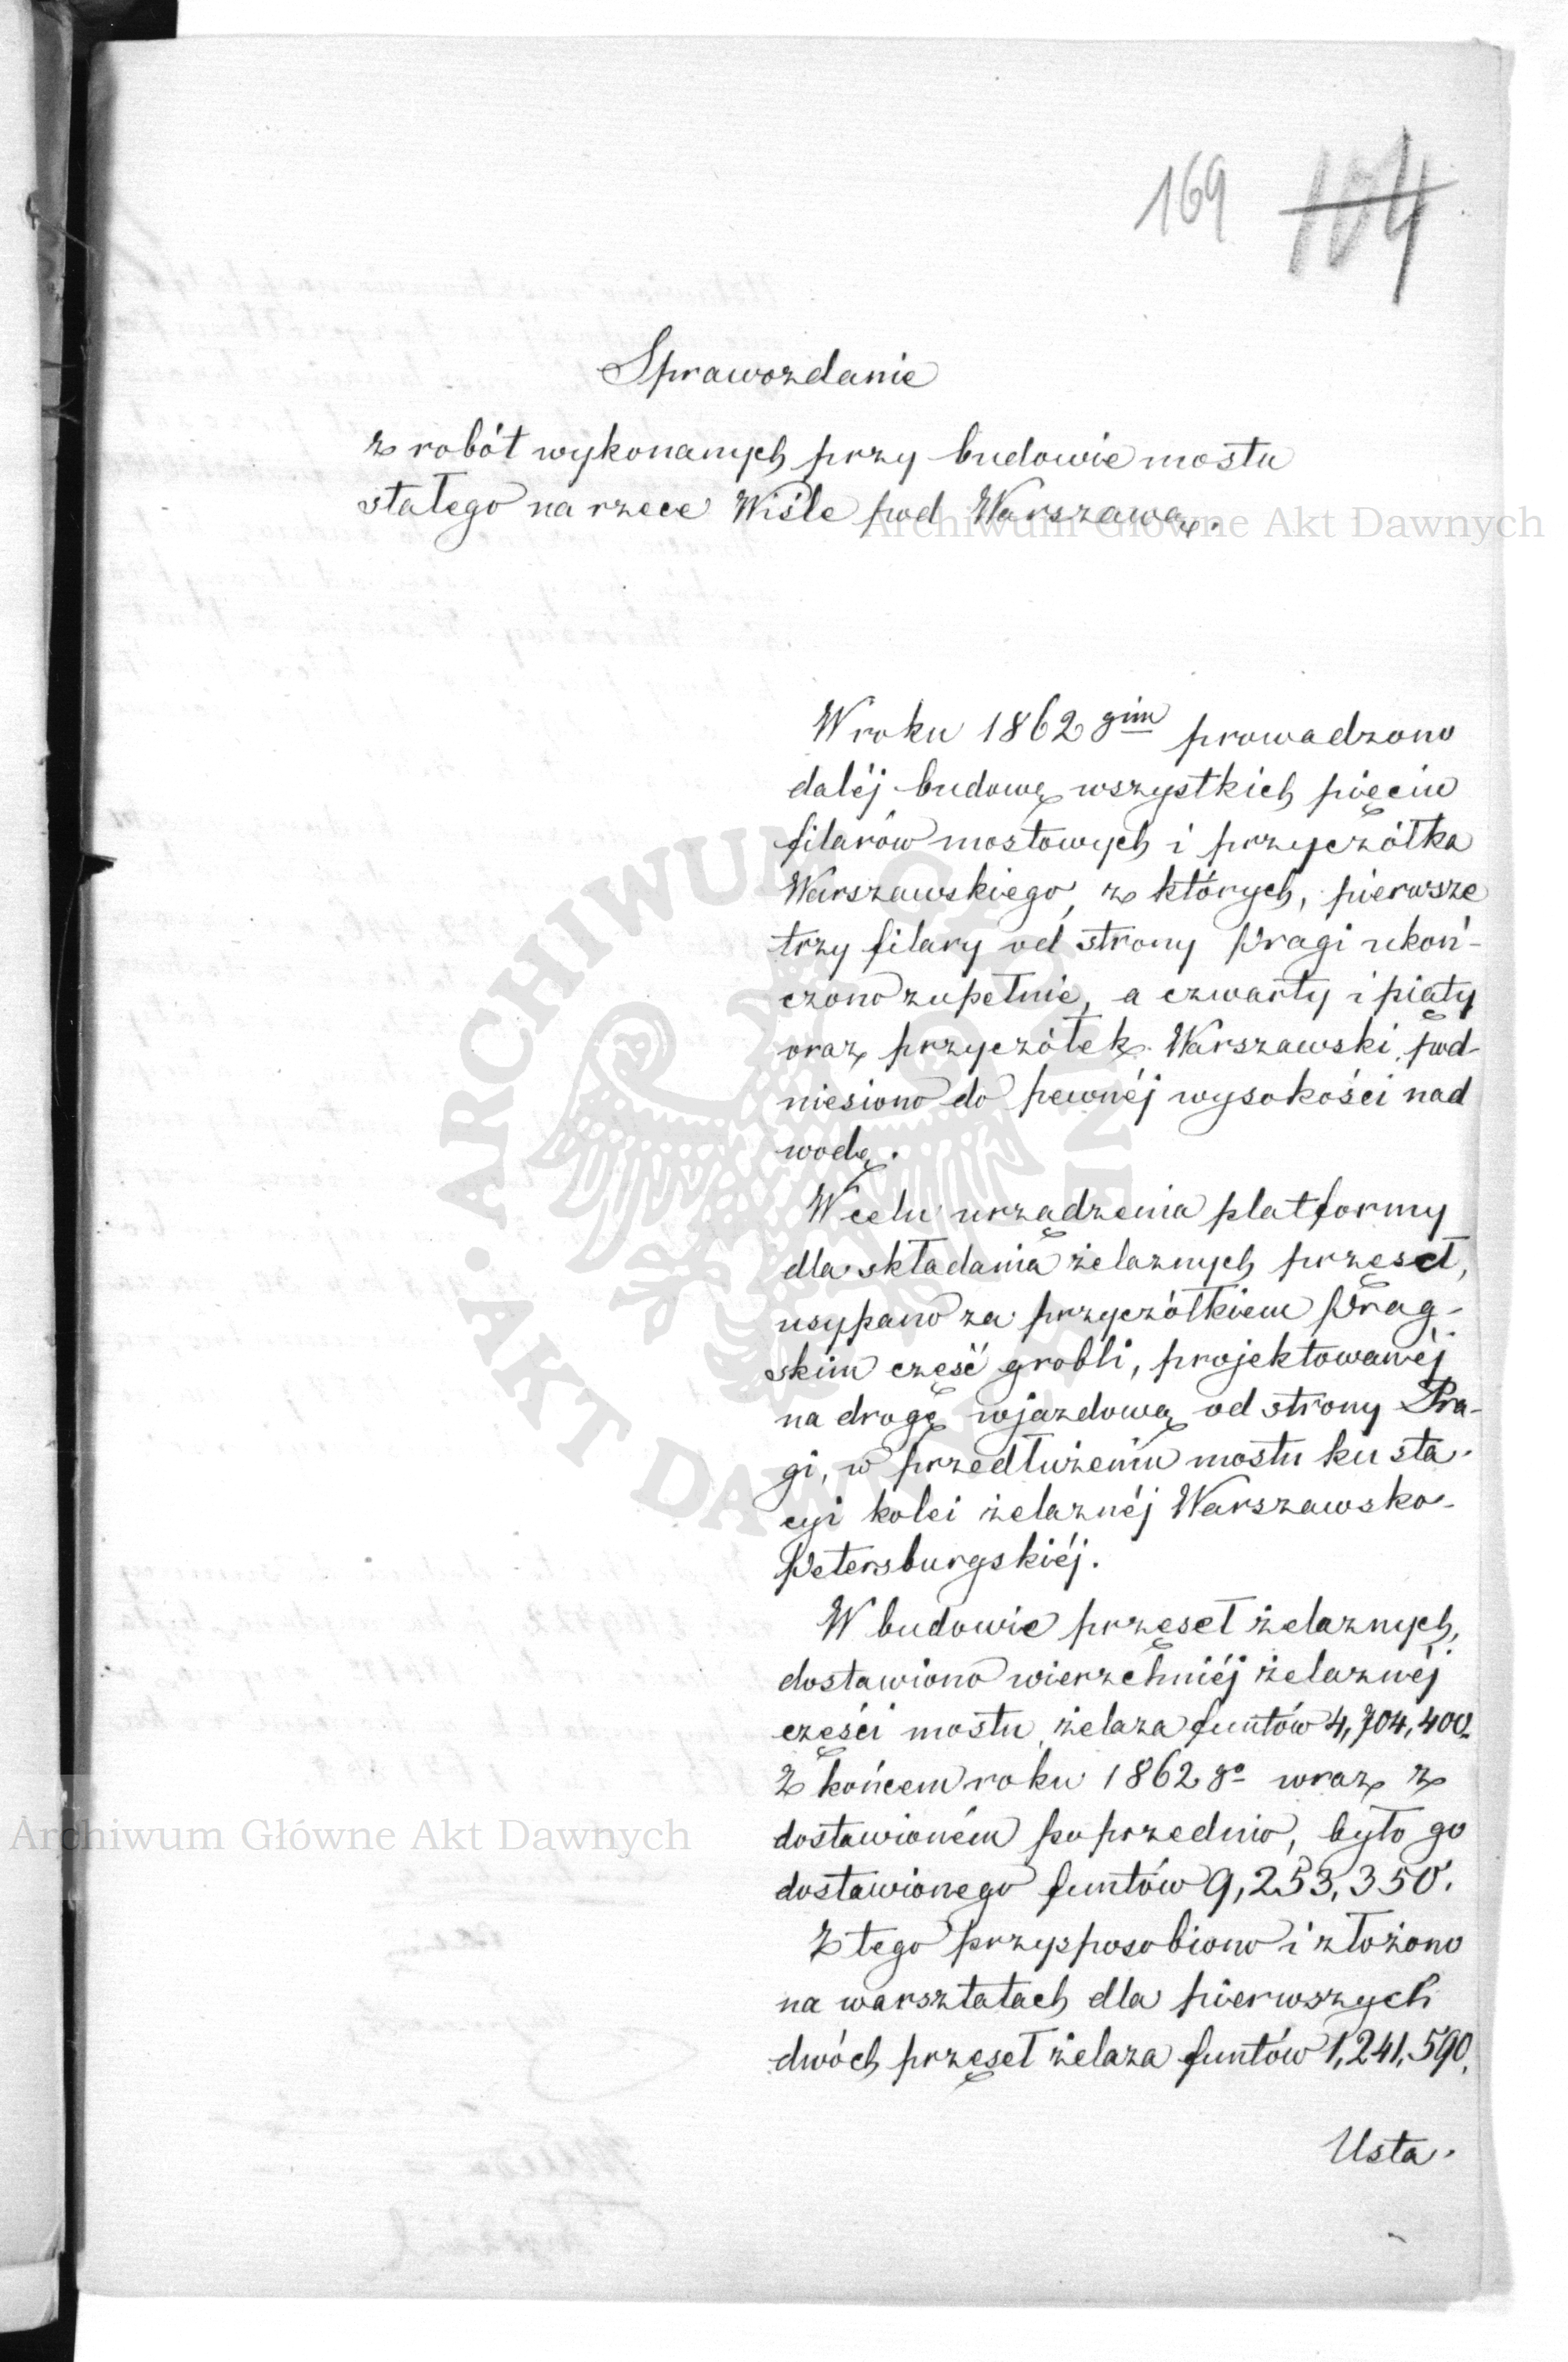 169 104
Sprawozdanie
z robót wykonanych przy budowie mostu
stałego na rzece Wiśle pod Warszawą.
Archiwum Główne Akt Dawnych
W roku 1862 gim prowadzono
daléj budowę wszystkich pięciu
filarów mostowych i przyczółka
Warszawskiego, z których, pierwsze
trzy filary od strony Pragi ukoń-
czono zupełnie, a czwarty i piąty
oraz przyczółek Warszawski, pod-
niesiono do pewnéj wysokości nad
wodę.
W celu urządzenia platformy
dla składania żelaznych przęseł,
usypano za przyczółkiem Prag-
skim część grobli, projektowanéj
na drogę wjazdową od strony Pra-
gi, w przedłużeniu mostu ku sta-
cyi kolei żelaznéj Warszawsko-
Petersburgskiéj.
W budowie przęseł żelaznych,
dostawiono wierzchniéj żelaznéj
części mostu, żelaza funtów 4,704,400.
Z końcem roku 1862 go wraz z
dostawioném poprzednio, było go
dostawionego funtów 9,253,350.
Z tego przysposobiono i złożono
na warsztatach dla pierwszych
dwóch przęseł żelaza funtów 1,241,590.
Usta-
Archiwum Główne Akt Dawnych
ARCHIWUM GŁÓWNE AKT DAWNYCH